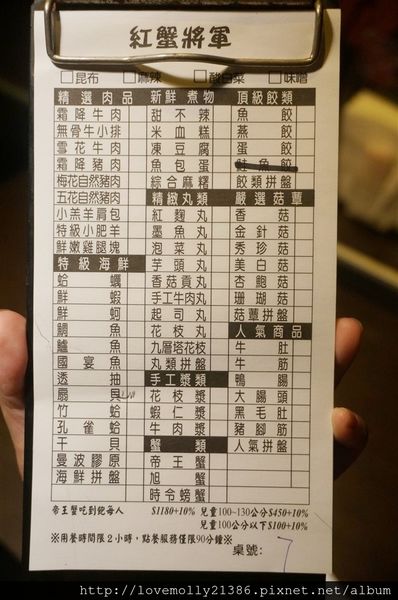 紅蟹將軍
昆布
麻辣
酸白菜
味噌
精選肉品
霜降牛肉
無骨牛小排
雪花牛肉
霜降豬肉
梅花自然豬肉
五花自然豬肉
小羔羊肩包
特級小肥羊
鮮嫩雞腿塊
特級海鮮
蛤蠣
鮮蝦
鮮蚵
鯛魚
鱸魚
國宴魚
透抽
扇貝
竹蛤
孔雀蛤
干貝
曼波膠原
海鮮拼盤
新鮮煮物
甜不辣
米血糕
凍豆腐
魚包蛋
綜合麻糬
精緻丸類
紅麴丸
墨魚丸
泡菜丸
芋頭丸
香菇貢丸
手工牛肉丸
起司丸
花枝丸
九層塔花枝
丸類拼盤
手工漿類
花枝漿
蝦仁漿
牛肉漿
蟹類
帝王蟹
旭蟹
時令螃蟹
頂級餃類
魚餃
燕餃
蛋餃
鮭魚餃
餃類拼盤
嚴選菇蕈
香菇
金針菇
秀珍菇
美白菇
杏鮑菇
珊瑚菇
菇蕈拼盤
人氣商品
牛肚
牛筋
鴨腸
大腸頭
黑毛肚
豬腳筋
人氣拼盤
帝王蟹吃到飽每人 $1180+10% 兒童100~130公分$450+10%
兒童100公分以下$100+10%
※用餐時間限2小時，點餐服務僅限90分鐘※
桌號: 7
http://lovemolly21386.pixnet.net/album